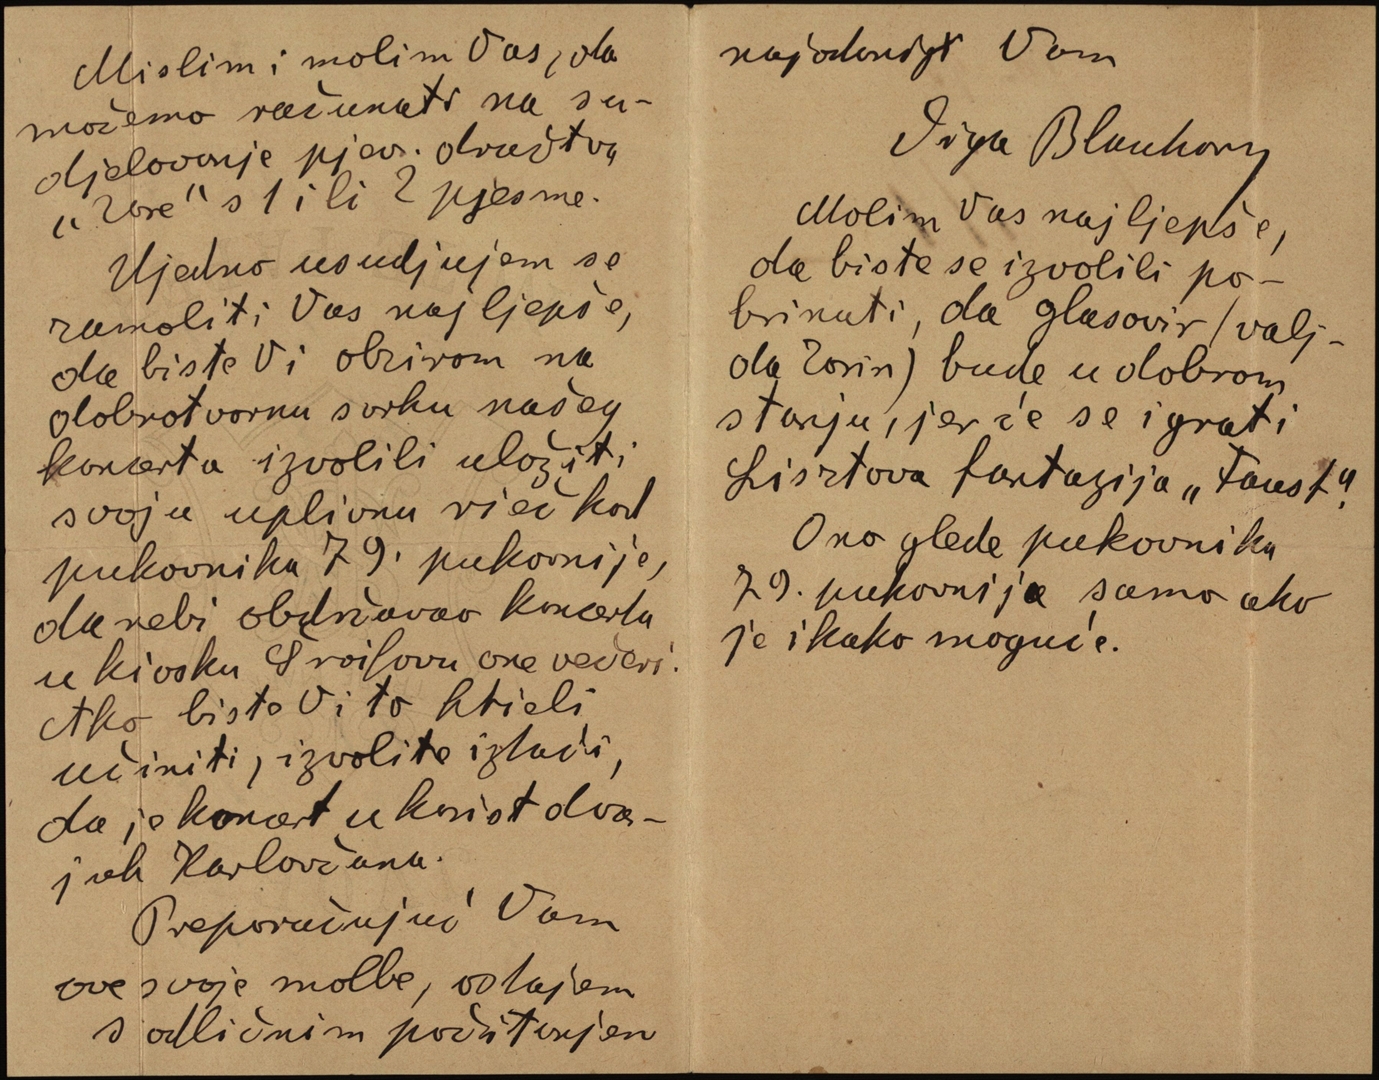 Mislim i molim Vas, da
možemo računati na su-
djelovanje pjev. društva
„Zore" s 1 ili 2 pjesme.
Ujedno usudjujem se
zamoliti Vas najljepše,
da biste Vi obzirom na
dobrotvornu svrhu našeg
koncerta izvolili uložiti
svoju uplivnu rieč kod
pukovnika 79. pukovnije,
da nebi obdržavao koncerta
u kiosku one večeri.
Ako biste Vi to htieli
učiniti, izvolite iztaći,
da je koncert u korist dva-
juh Karlovčana.
Preporučujuć Vam
ove svoje molbe, ostajem
s odličnim počitanjem
najodaniji Vam
Žiga
Molim Vas najljepše,
da biste se izvolili po-
brinuti, da glasovir (valj-
da Zorin) bude u dobrom
stanju, jer će se igrati
Lisztova fantazija „Faust".
Ono glede pukovnika
79. pukovnije samo ako
je ikako moguće.